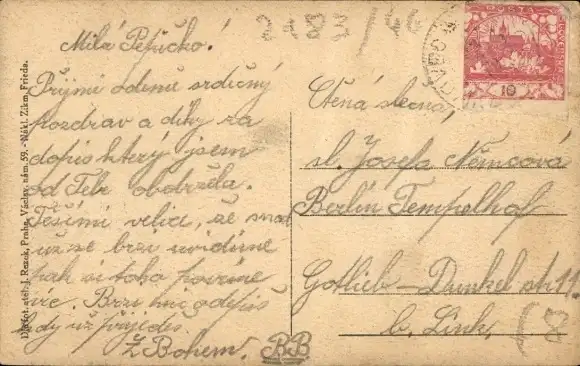 Milá Pepičko!
Přijmi odemě srdečný
pozdrav a díky za
dopis který jsem
od Tebe obdržela.
Těšími velice, že snad
už se brzi uvidíme
pak si toho povíme
víc. Brzi mně odepiš
kdy už přijedeš.
Z Bohem. BB
Ctěná slečna,
sl. Josefa Němcová
Berlin Tempelhof
Gotlieb-Dunkel str 11.
b. Link,
POŠTA
10
Fot. atel. J. Rezek, Praha, Václav. nám. 59. - Nákl. Zikm. Frieda.